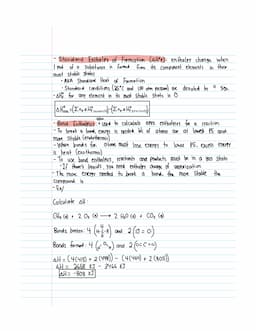 - Standard Enthalpy of Formation (ΔH°f): enthalpy change when
1 mol of a substance is formed from its component elements in their
most stable states
- AKA Standard Heat of Formation
- Standard conditions (25°C and 1.00 atm pressure) are denoted by ° sign
- ΔH°f for any element in its most stable state is 0
- Bond Enthalpies: used to calculate rxn enthalpies for a reaction
- To break a bond, energy is needed b/c atoms are at lower PE and
more stable (endothermic)
- When bonds form, atoms must lose energy to lower PE, causing energy
is heat (exothermic)
- To use bond enthalpies, reactants and products must be in a gas state
- If there's liquids, you need enthalpy change of vaporization
- The more energy needed to break a bond, the more stable the
compound is
- Ex/
Calculate ΔH:
CH₄ (g) + 2 O₂ (g) → 2 H₂O (g) + CO₂ (g)
Bonds broken: 4 and 2 (O=O)
Bonds formed: 4 and 2 (O=C=O)
ΔH = (4(413) + 2(498)) - (4(464) + 2(803))
ΔH = 2648 kJ - 3466 kJ
ΔH = -808 kJ